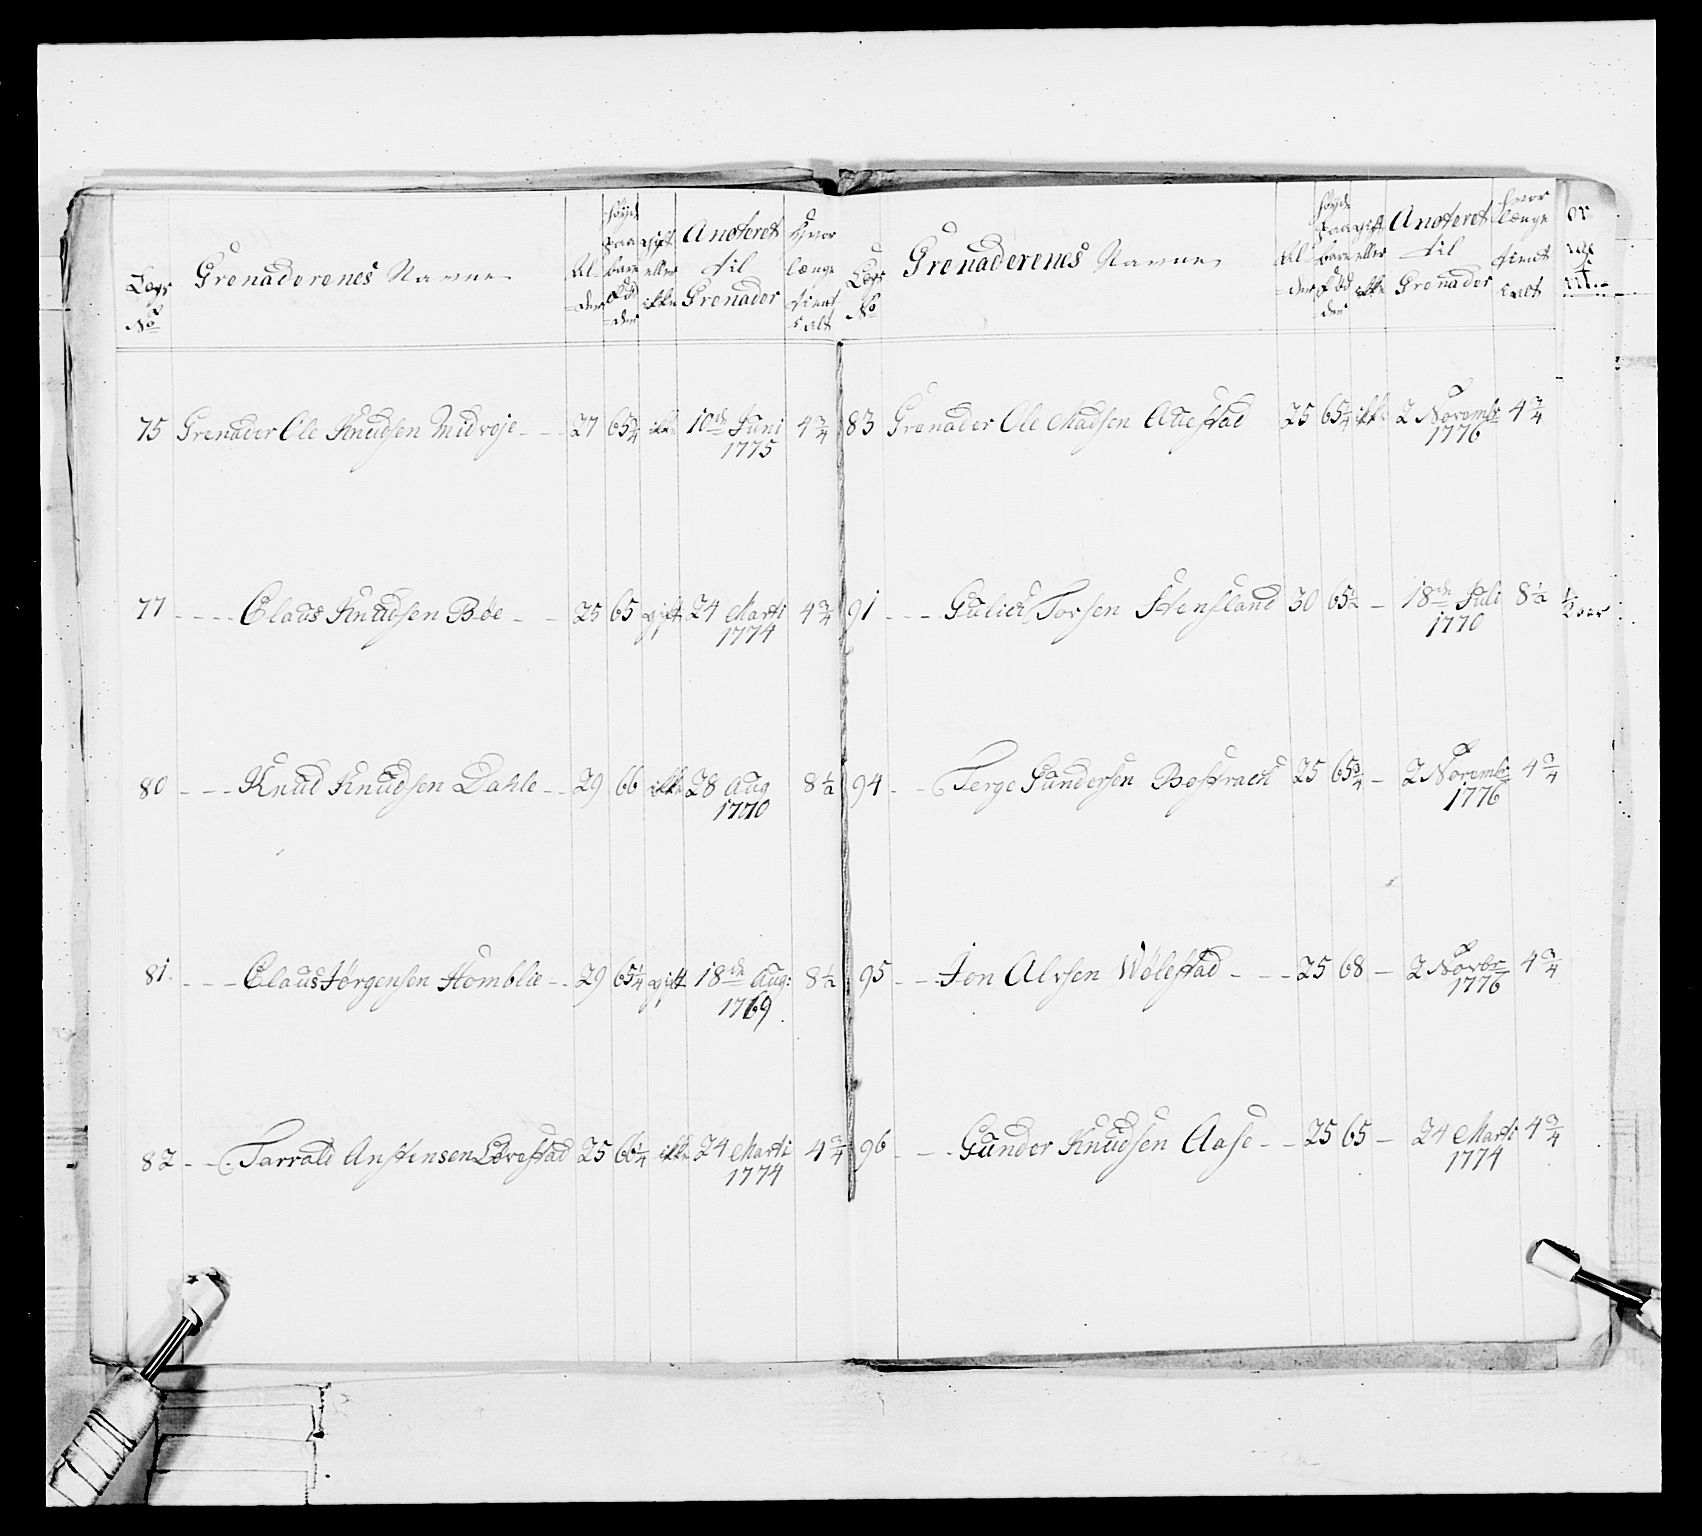 Legs No Grenaderenes Navne Alder Høyde paa bare Fødder gift eller ikke Anoteret til Grenader Hvor længe tient i alt
75 Grenader Ole Knudsen Midvoje 27 65 3/4 ikke 10de Juni 1775 4 3/4
77 Claus Knudsen Bøe 25 65 gift 24 Marti 1774 4 3/4
80 Knud Knudsen Dahle 29 66 ikke 28 Aug 1770 8 1/2
81 Claus Jørgensen Homblie 29 65 1/4 gift 18de Aug: 1769 8 1/2
82 Tarrald Anstensen Løvestad 25 66 1/4 ikke 24 Marti 1774 4 3/4
Legs No Grenaderenes Navne Alder Høyde paa bare Fødder gift eller ikke Anoteret til Grenader hvor længe tient i alt
83 Grenader Ole Madsen Auestad 25 65 1/4 ikke 2 Novembr 1776 4 3/4
91 Gulich Torsen Stensland 30 65 1/2 - 18de Juli 1770 8 1/2
94 Terge Gundersen Bostrach 25 65 3/4 - 2 Novembr 1776 4 3/4
95 Jon Alvsen Wølestad 25 68 - 2 Novbr 1776 4 3/4
96 Gunder Knudsen Aase 25 65 - 24 Marti 1774 4 3/4